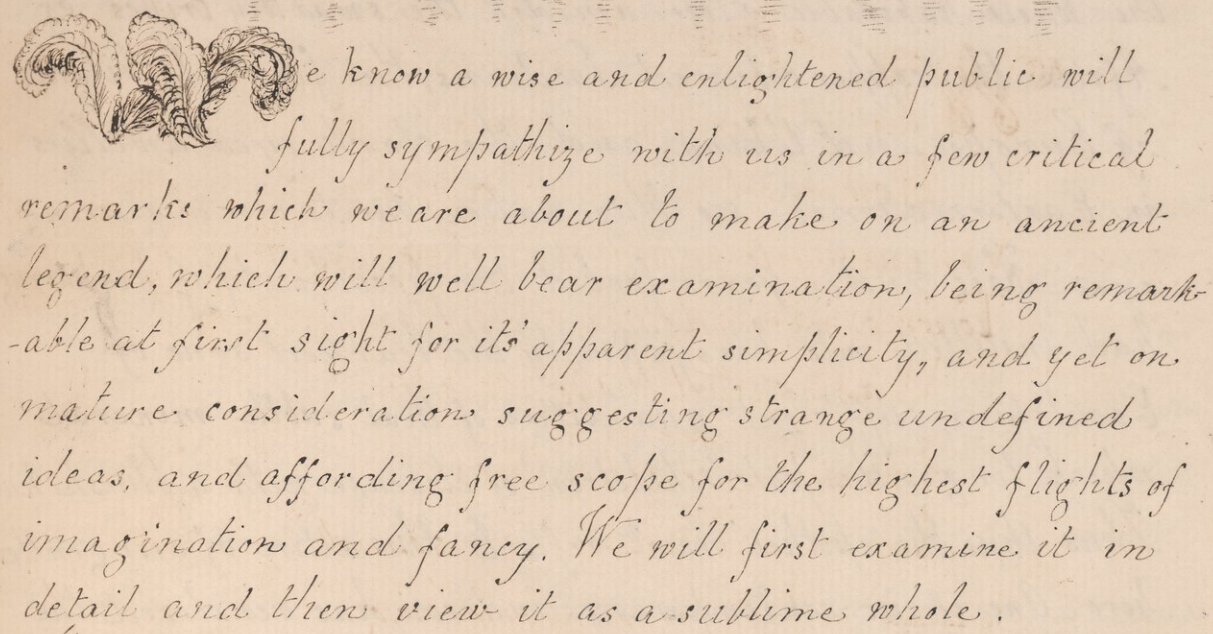 We know a wise and enlightened public will
fully sympathize with us in a few critical
remarks which we are about to make on an ancient
legend, which will well bear examination, being remark-
-able at first sight for it's apparent simplicity, and yet on
mature consideration suggesting strange undefined
ideas, and affording free scope for the highest flights of
imagination and fancy. We will first examine it in
detail and then view it as a sublime whole.